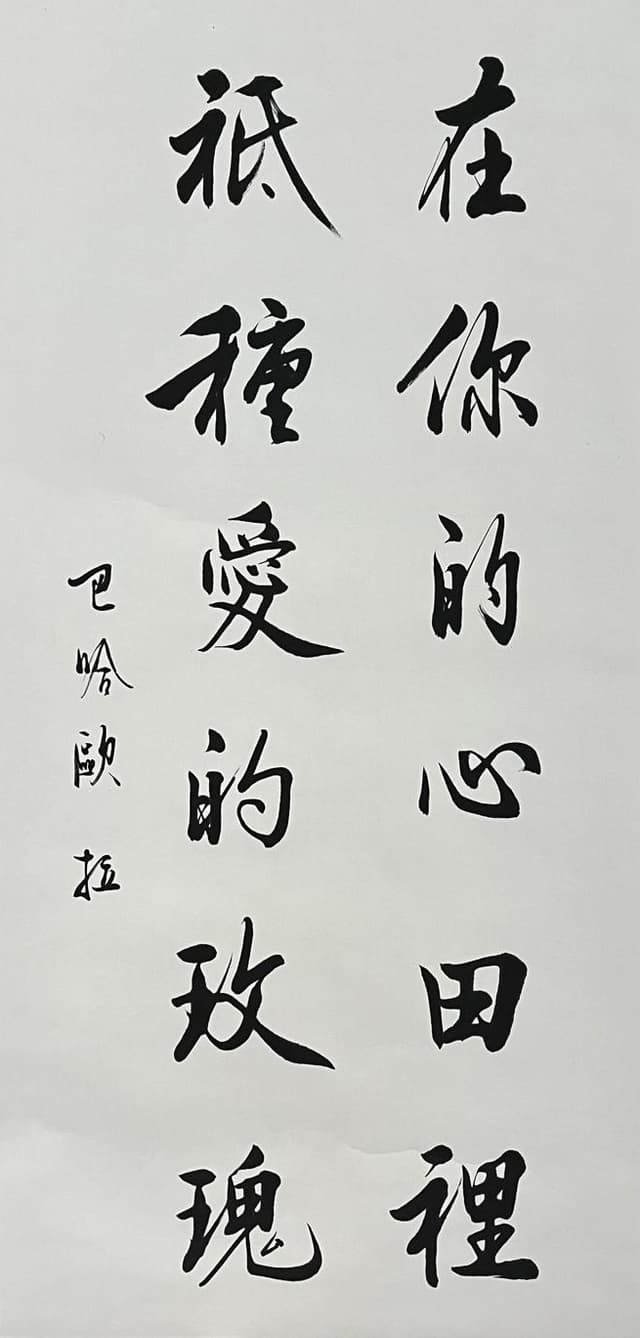 在你的心田裡
祗種愛的玫瑰
巴哈歐拉